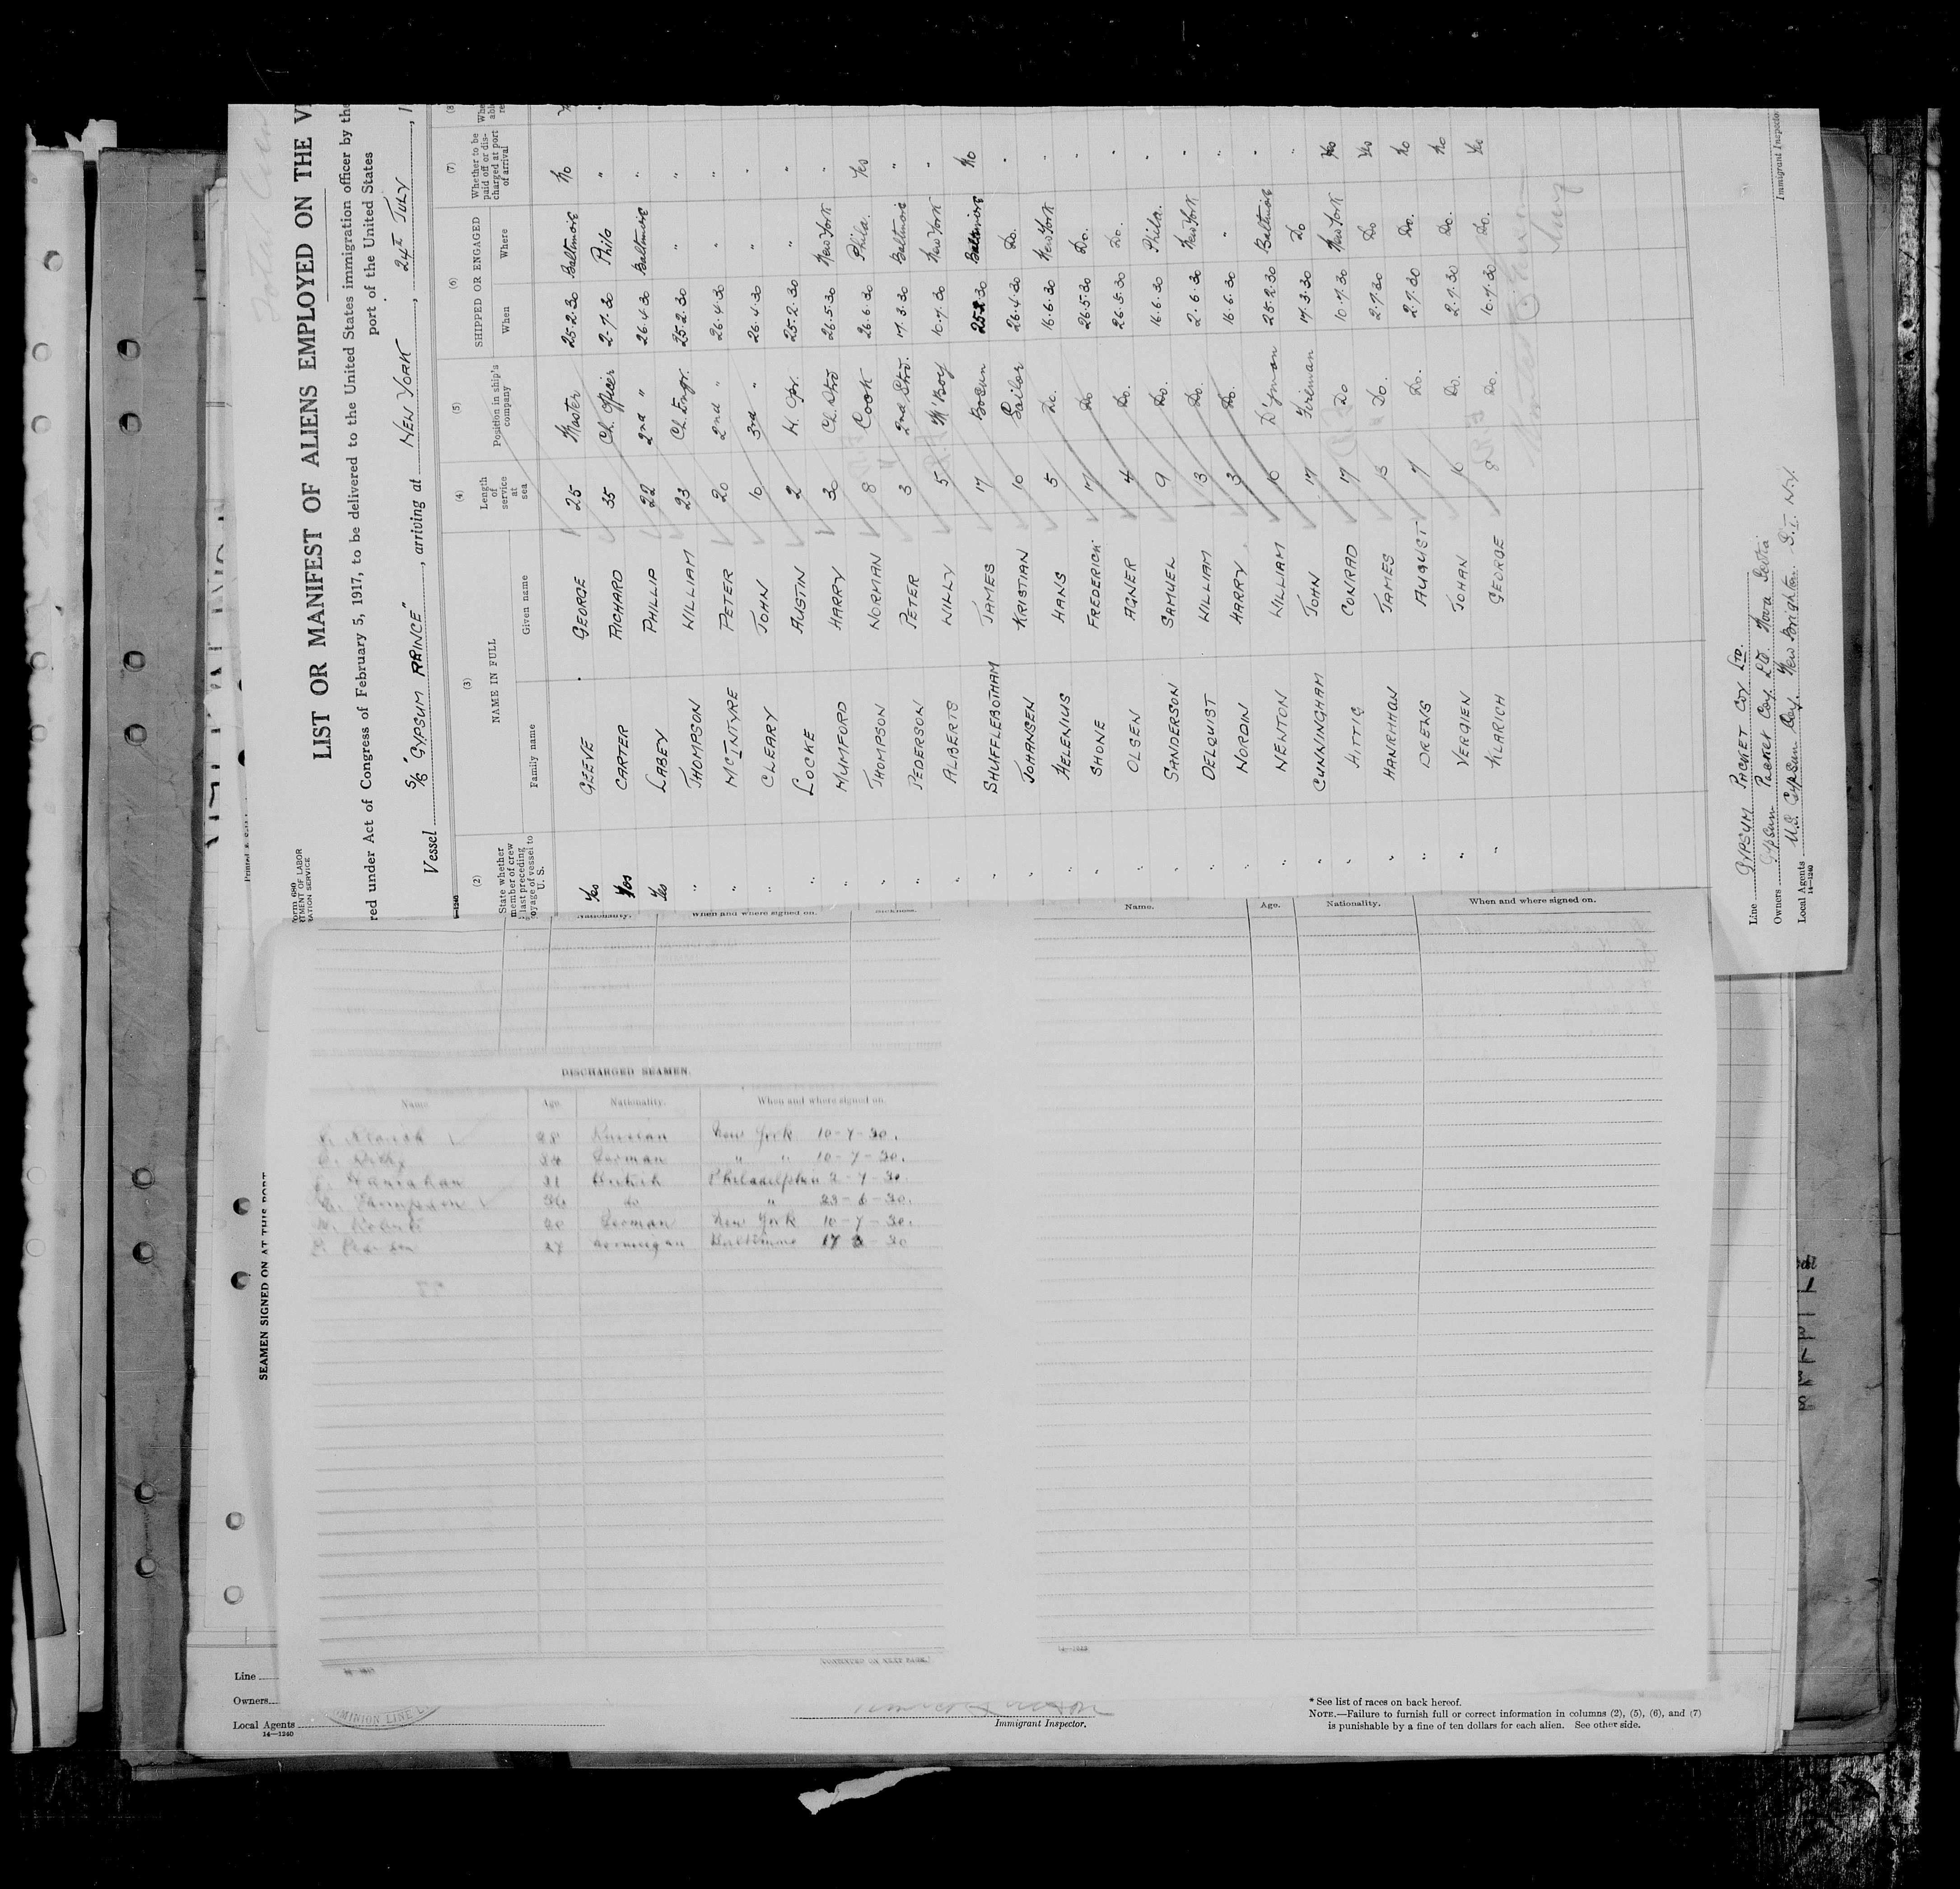 LIST OR MANIFEST OF ALIENS EMPLOYED ON THE
red under Act of Congress of February 5, 1917, to be delivered to the United States immigration officer by the
port of the United States
Vessel S/S "GYPSUM PRINCE", arriving at NEW YORK, 24TH JULY
(2) (3) (4) (5) (6) (7)
State whether member of crew last preceding voyage of vessel to U. S. NAME IN FULL Length of service at sea Position in ship's company SHIPPED OR ENGAGED Whether to be paid off or discharged at port of arrival
Family name Given name When Where
Yes GEEVE GEORGE 25 Master 25.2.30 Baltimore No
Yes CARTER RICHARD 35 Ch. Officer 2.7.30 Phila "
Yes LABEY PHILLIP 22 2nd " 26.4.30 Baltimore "
" THOMPSON WILLIAM 23 Ch. Engr. 25.2.30 " "
" McINTYRE PETER 20 2nd " 26.4.30 " "
" CLEARY JOHN 10 3rd " 26.4.30 " "
" LOCKE AUSTIN 2 25.2.30 " "
" MUMFORD HARRY 30 Ch. Std 26.5.30 New York "
" THOMPSON NORMAN 8 Cook 26.6.30 Phila. Yes
" PEDERSON PETER 3 2nd Std. 17.3.30 Baltimore "
" ALBERTS WILLY 5 M'Boy 10.7.30 New York "
" SHUFFLEBOTHAM JAMES 17 Bosun 25.2.30 Baltimore No
" JOHANSEN KRISTIAN 10 Sailor 26.4.30 Do. "
" HELENIUS HANS 5 Do. 16.6.30 New York "
" SHONE FREDERICK 17 Do 26.5.30 Do. "
" OLSEN AGNER 4 Do. 26.5.30 Do. "
" SANDERSON SAMUEL 9 Do. 16.6.30 Phila. "
" DELQUIST WILLIAM 13 Do. 2.6.30 New York "
" NORDIN HARRY 3 Do. 16.6.30 " "
" NEWTON WILLIAM 10 D'kman 25.2.30 Baltimore "
" CUNNINGHAM JOHN 17 Fireman 17.3.30 Do "
" HITTIG CONRAD 17 Do 10.7.30 New York Yes
" HANRAHAN JAMES 13 Do. 2.7.30 Do Yes
" DREWS AUGUST 7 Do. 2.7.30 Do. No
" VERGIEN JOHAN 16 Do. 2.7.30 Do. No
" KLARICH GEORGE 8 Do. 10.7.30 Do. Yes
Line GYPSUM PACKET COY LTD.
Owners Gypsum Packet Coy. Ltd. Nova Scotia
Local Agents U.S. Gypsum Coy. New Brighton. S.I. N.Y.
14—1240
Immigrant Inspector
Nationality. When and where signed on.
Name. Age. Nationality. When and where signed on.
DISCHARGED SEAMEN.
Name Age. Nationality. When and where signed on.
28 Russian New York 10-7-30.
34 German " " 10-7-30.
J. Hanrahan 31 British Philadelphia 2-7-30.
N. Thompson 36 do " 23-6-30.
20 German New York 10-7-30.
27 Norwegian Baltimore 17 3-30
CONTINUED ON NEXT PAGE.
SEAMEN SIGNED ON AT THIS PORT
Line
Owners
Local Agents
14—1240
Immigrant Inspector.
* See list of races on back hereof.
NOTE.—Failure to furnish full or correct information in columns (2), (5), (6), and (7)
is punishable by a fine of ten dollars for each alien. See other side.